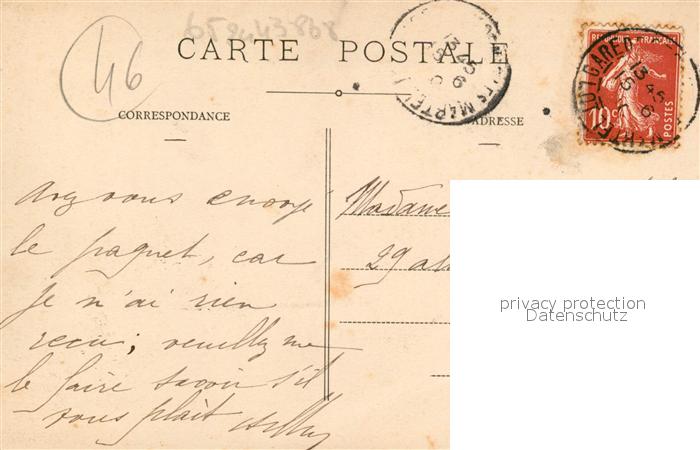 659443868
46
CARTE POSTALE
CORRESPONDANCE
ADRESSE
10c
POSTES
Avez vous envoyé
le paquet, car
je n'ai rien
recu; veuillez me
le faire savoir s'il
vous plait
Madame
29
privacy protection
Datenschutz